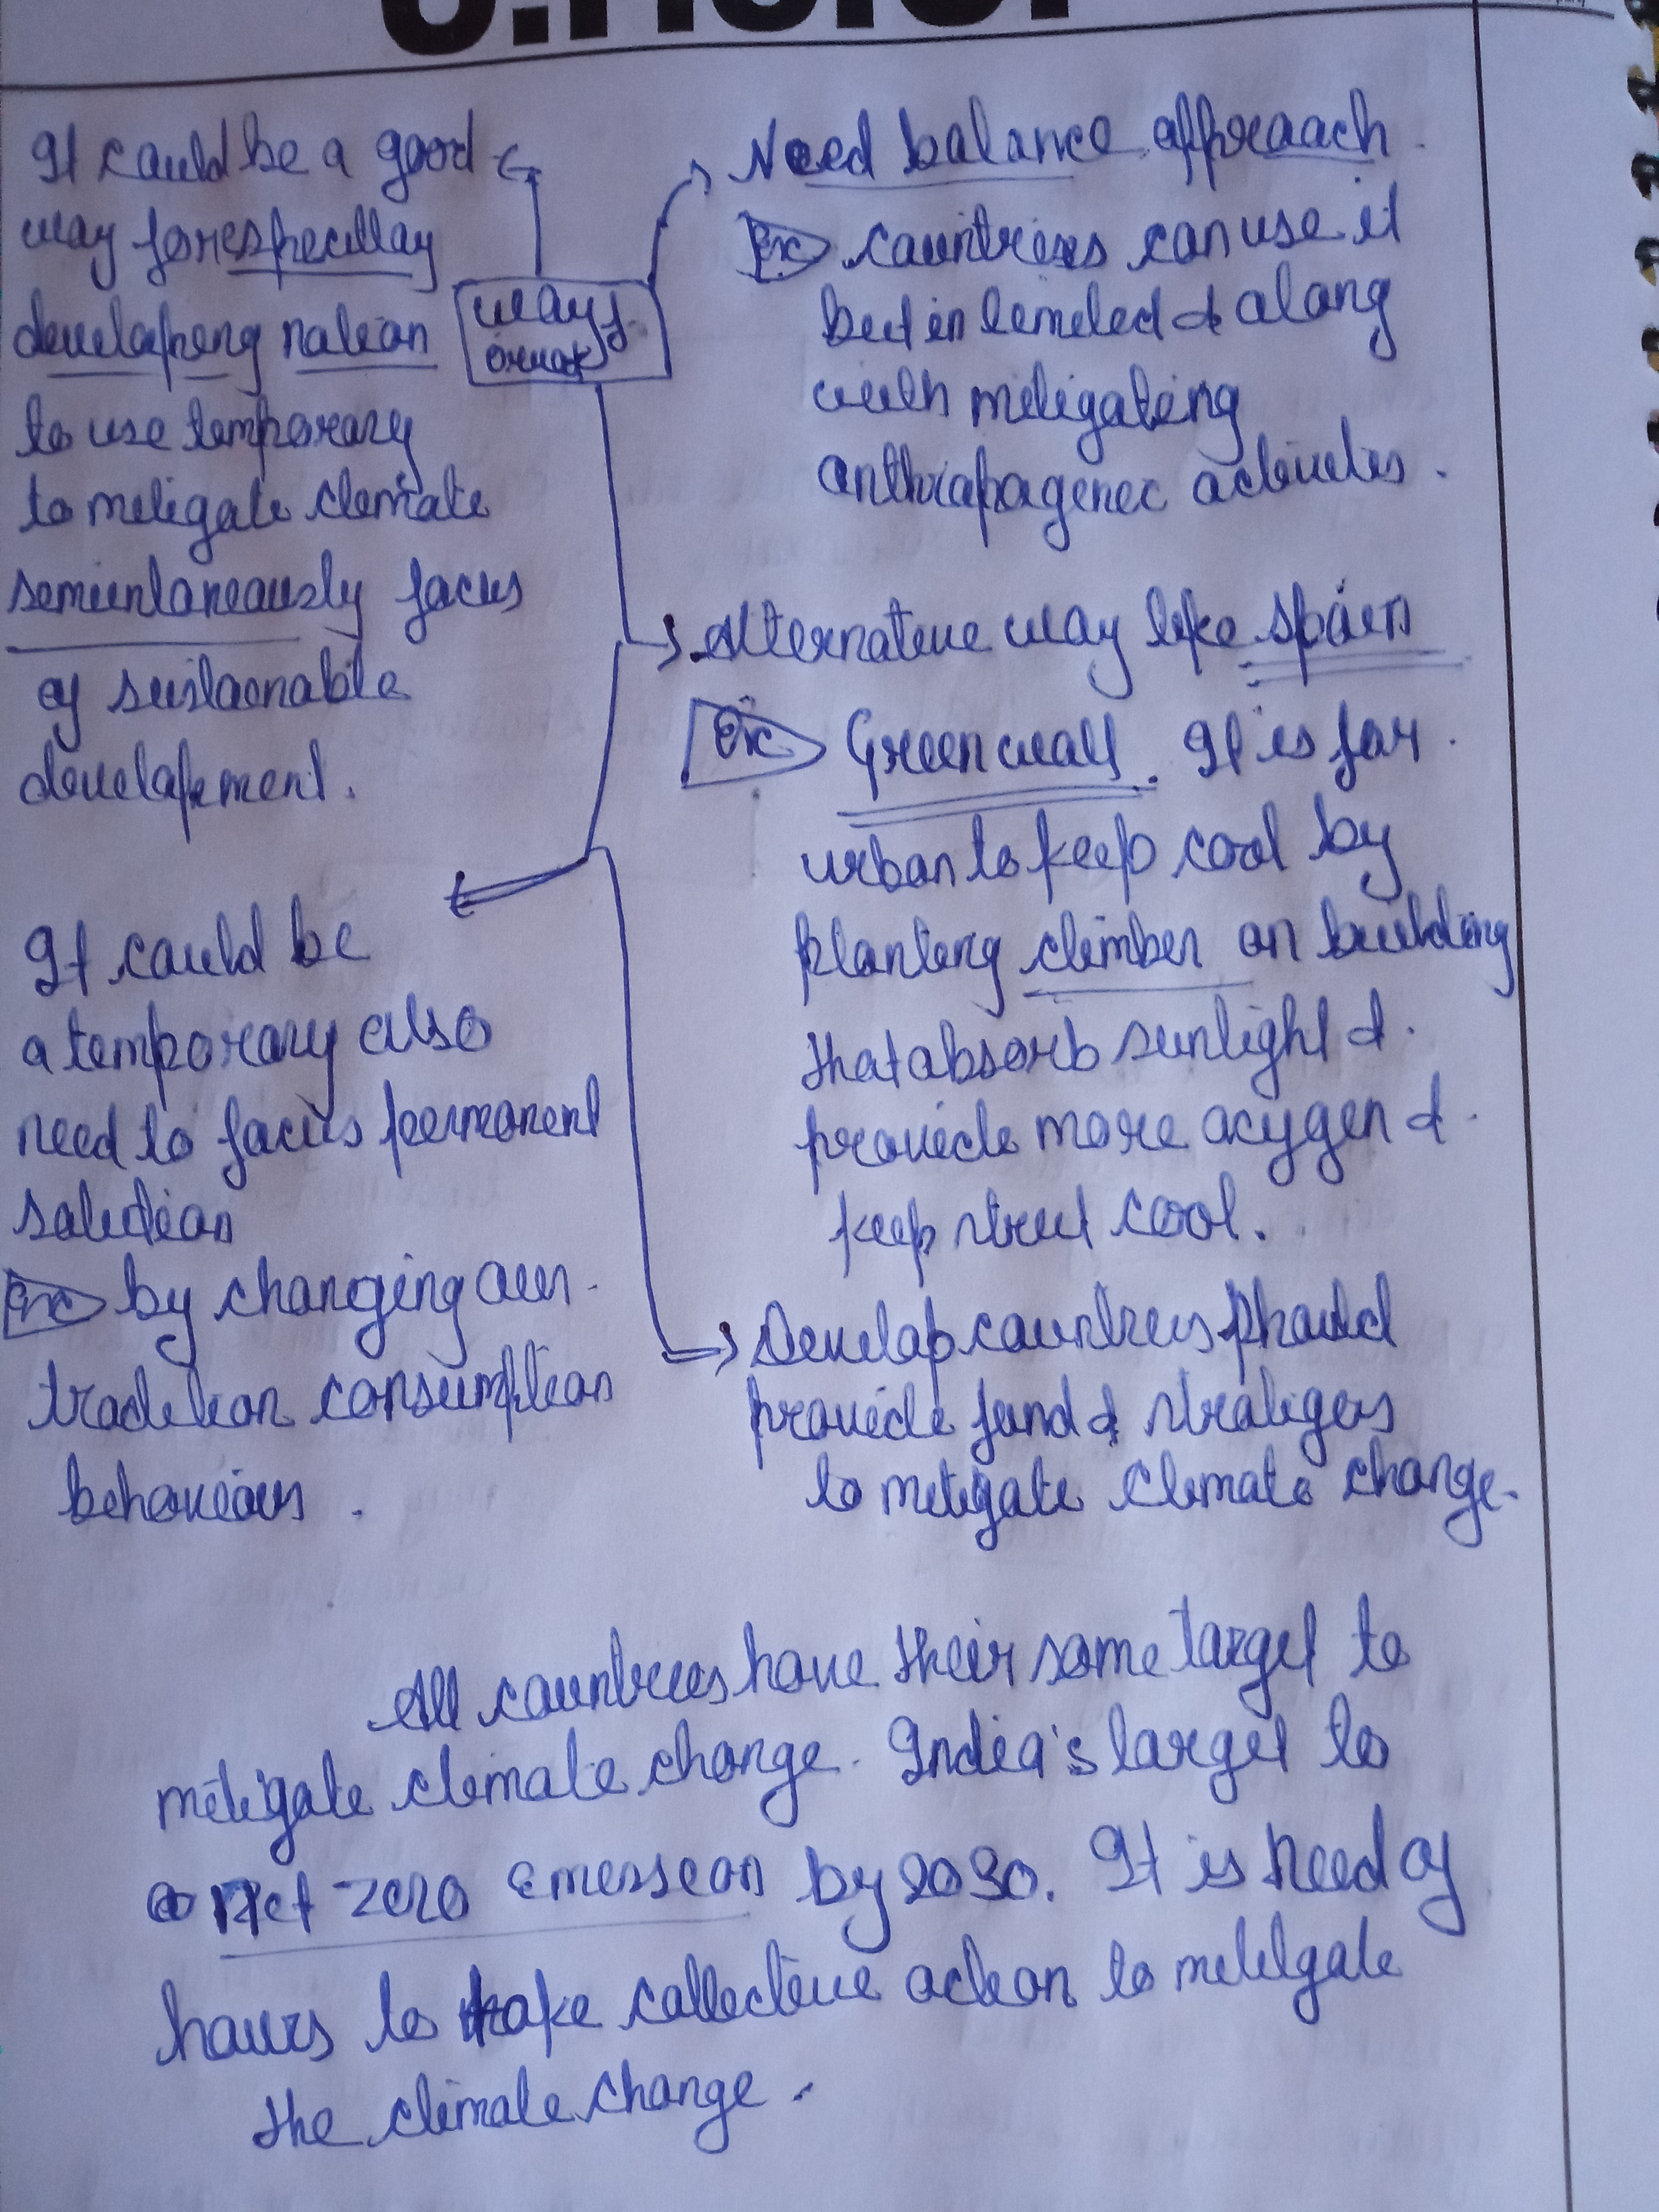 It could be a good
way for especillay
developing nation
to use temporary
to mitigate climate
simuntaneously focus
of sustaonable
developement.
way f
orward
Need balance approaach.
Ex countries can use it
but in limited & along
with mitigating
anthropogenic activites.
Alternative way like spain
Ex Green wall. It is for
urban to keep cool by
planting climber on building
that absorb sunlight &
provide more oxygen &
keep street cool.
It could be
a temporary also
need to focus permanent
solution
Ex by changing our
tradition consumption
behaviour.
Develop countries should
provide fund & stratiges
to mitigate climate change.
All countries have their some target to
mitigate climate change. India's target to
Net zero emession by 2030. It is need of
hours to take collective action to mitigate
the climate change.